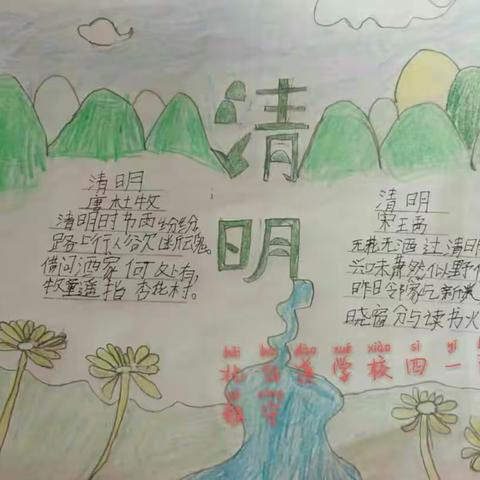 清明
清明
唐 杜牧
清明时节雨纷纷
路上行人欲断魂
借问酒家何处有,
牧童遥指杏花村。
清明
宋 王禹
无 无酒过清明
兴味萧然似野
昨日邻家乞新
晓窗分与读书火
dào xué xiào sì yī
道 学 校 四 一